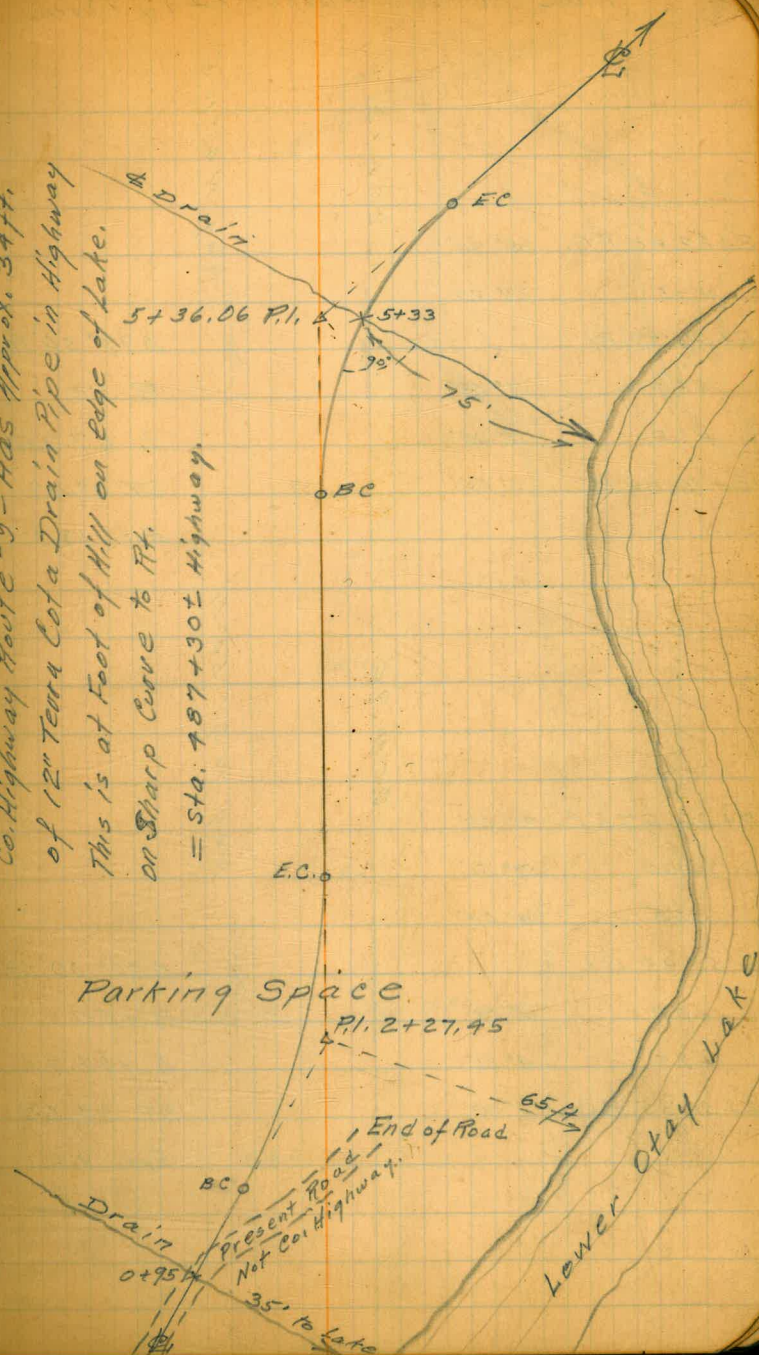 Co. Highway Route - Has Approx. 34 ft.
of 12" Terra Cota Drain Pipe in Highway
This is at Foot of Hill on edge of Lake.
on Sharp Curve to Rt.
= Sta. 487+30± Highway.
℄
℄ Drain
EC
5+36.06 P.I.
5+33
90°
75'
BC
E.C.
Parking Space
P.I. 2+27.45
65 ft
End of Road
BC
Present Road
Not Co. Highway.
Drain
0+95
35' to Lake
℄
Lower Otay Lake